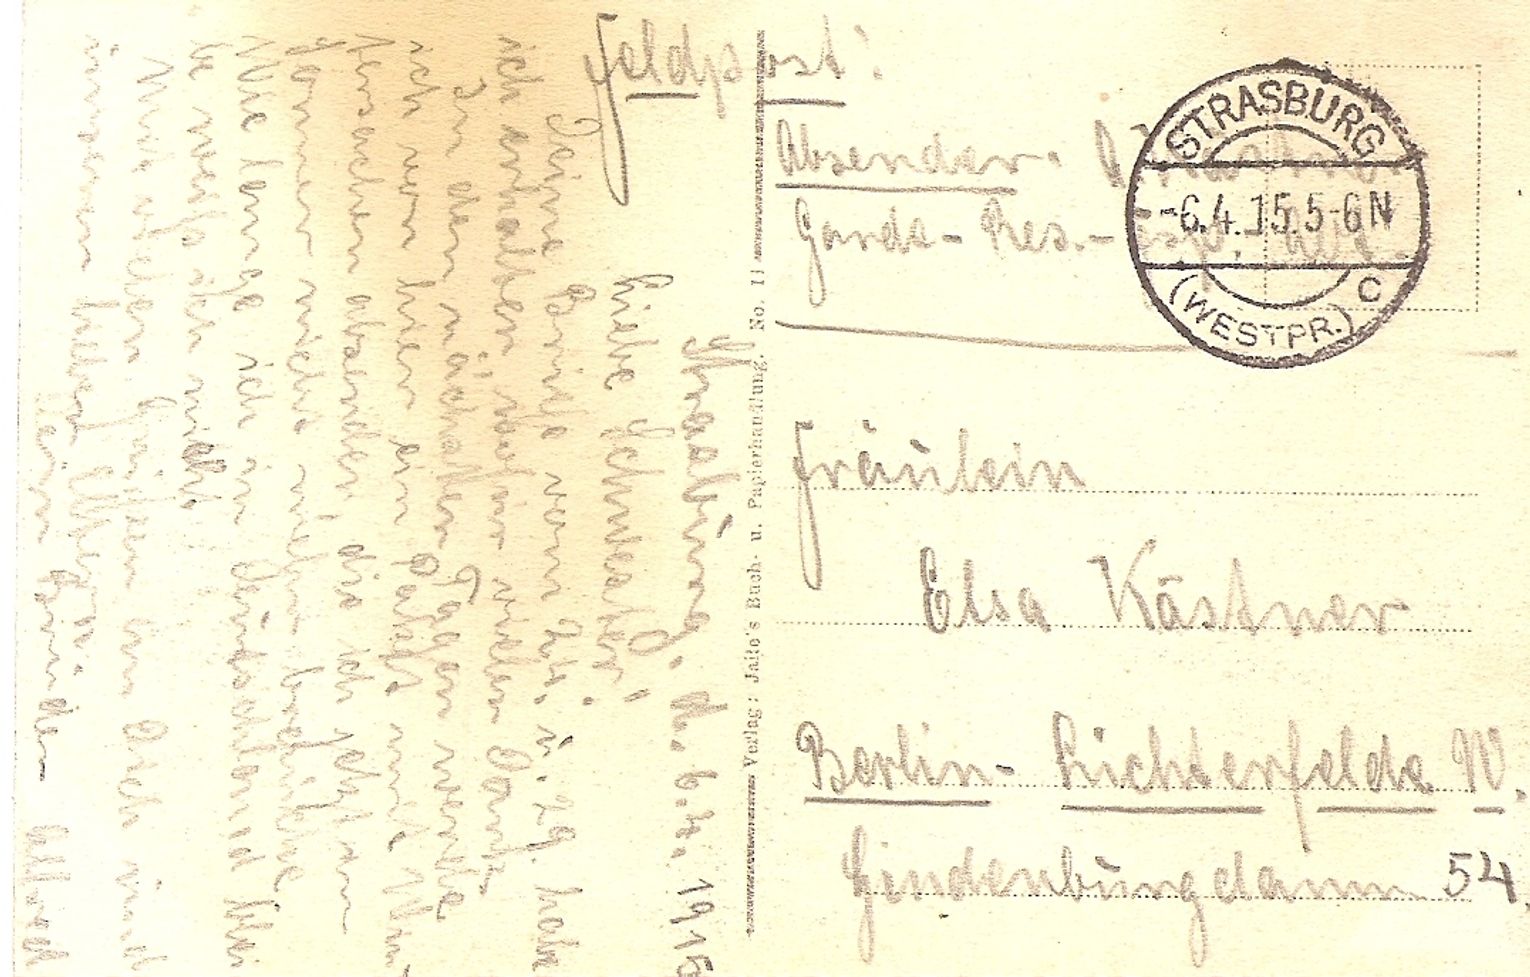 Feldpost!
Absender:
Garde-Res.-
STRASBURG
-6.4.15.5-6N
(WESTPR.) C
Fräulein
Elsa Kästner
Berlin-Lichterfelde W.
Hindenburgdamm 54.
Verlag: Jallo's Buch- u. Papierhandlung. No. 11
Strasburg, d. 6.4.1915
Liebe Schwester!
Deine Briefe vom 26. u. 29. habe
ich erhalten, wofür vielen Dank.
In den nächsten Tagen werde
ich von hier ein Paket mit Win-
tersachen absenden, die ich jetzt im
Sommer nicht mehr brauche.
Wie lange ich in Deutschland blei-
be weiß ich nicht.
Mit vielen Grüßen an Dich und
unseren lieben
Dein Bruder Alfred